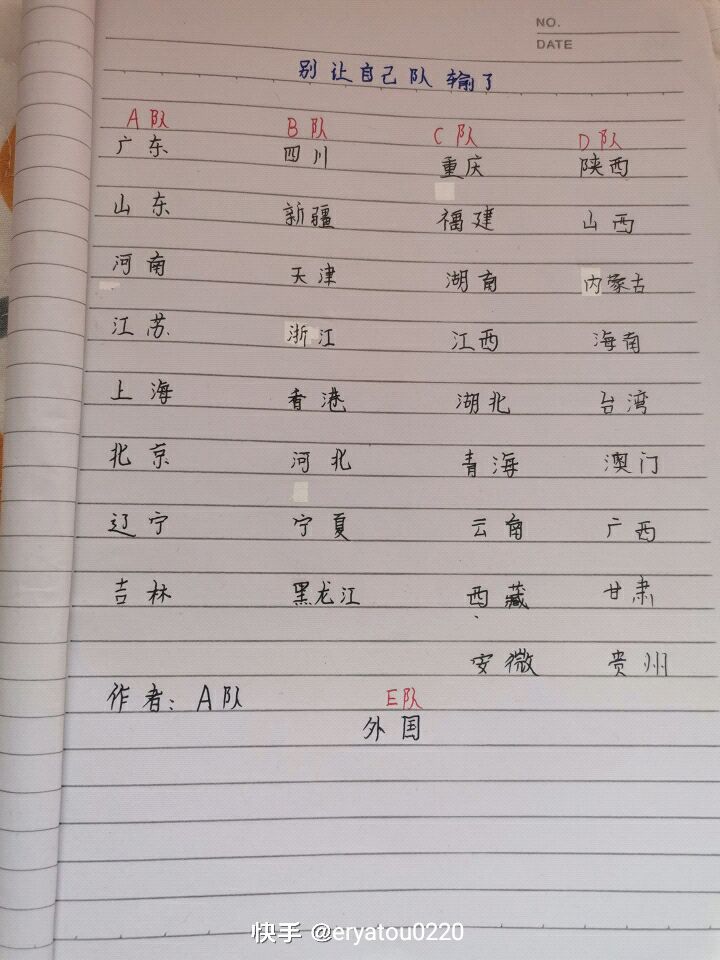 NO.
DATE
别让自己队输了
A队 B队 C队 D队
广东 四川 重庆 陕西
山东 新疆 福建 山西
河南 天津 湖南 内蒙古
江苏 浙江 江西 海南
上海 香港 湖北 台湾
北京 河北 青海 澳门
辽宁 宁夏 云南 广西
吉林 黑龙江 西藏 甘肃
安微 贵州
作者：A队 E队
外国
快手 @eryatou0220